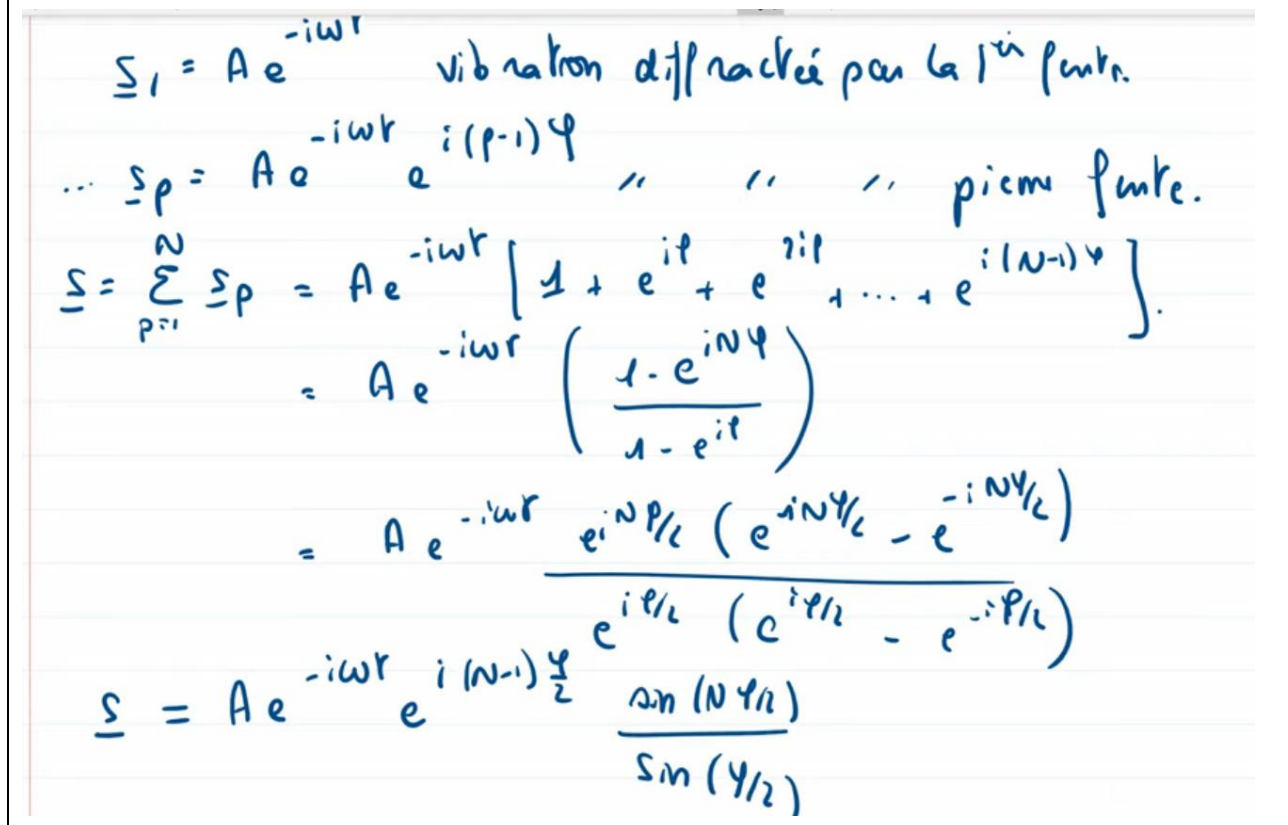 s₁ = A e^{-iωt} vibration diffractée par la 1ère fente.
... s_p = A e^{-iωt} e^{i(p-1)φ} " " " pieme fente.
s = Σ_{p=1}^{N} s_p = A e^{-iωt} [ 1 + e^{iφ} + e^{2iφ} + ... + e^{i(N-1)φ} ].
= A e^{-iωt} ( (1 - e^{iNφ}) / (1 - e^{iφ}) )
= A e^{-iωt} e^{iNφ/2} ( e^{iNφ/2} - e^{-iNφ/2} ) / e^{iφ/2} ( e^{iφ/2} - e^{-iφ/2} )
s = A e^{-iωt} e^{i(N-1)φ/2} sin(Nφ/2) / sin(φ/2)